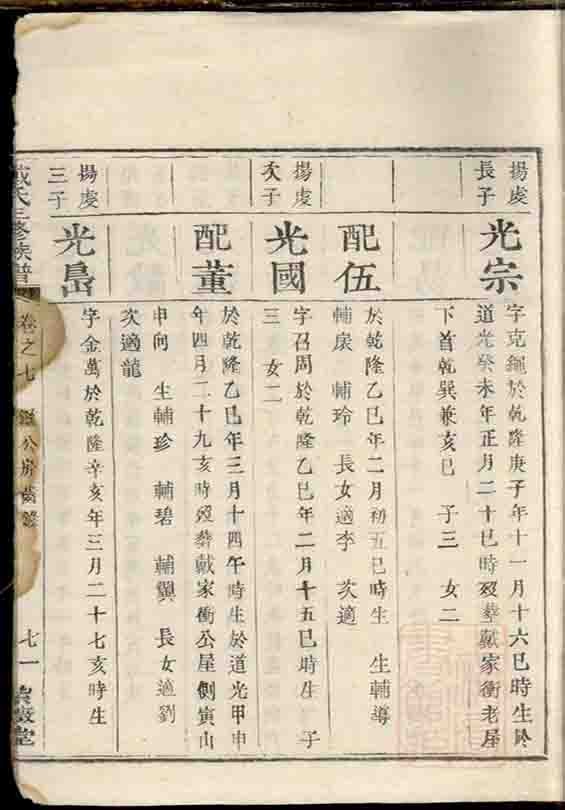 揚虔
長子
光宗
字克繩於乾隆庚子年十一月十六巳時生於
道光癸未年正月二十巳時歿葬戴家衝老屋
下首乾巽兼亥巳 子三 女二
配伍
於乾隆乙巳年二月初五巳時生 生輔導
輔宸 輔玲 長女適李 次適
揚虔
次子
光國
字召周於乾隆乙巳年二月十五巳時生 子
三 女二
配董
於乾隆乙巳年三月十四午時生於道光甲申
年四月二十九亥時歿葬戴家衝公屋側寅山
申向 生輔珍 輔碧 輔翼 長女適劉
次適龍
揚虔
三子
光嵓
字金萬於乾隆辛亥年三月二十七亥時生
戴氏三修族譜 卷之七 公房齒錄 七一 堂